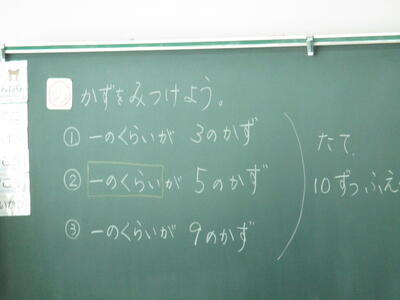 かずをみつけよう。
① 一のくらいが 3のかず
② 一のくらいが 5のかず
③ 一のくらいが 9のかず
たて、
10ずつふえ